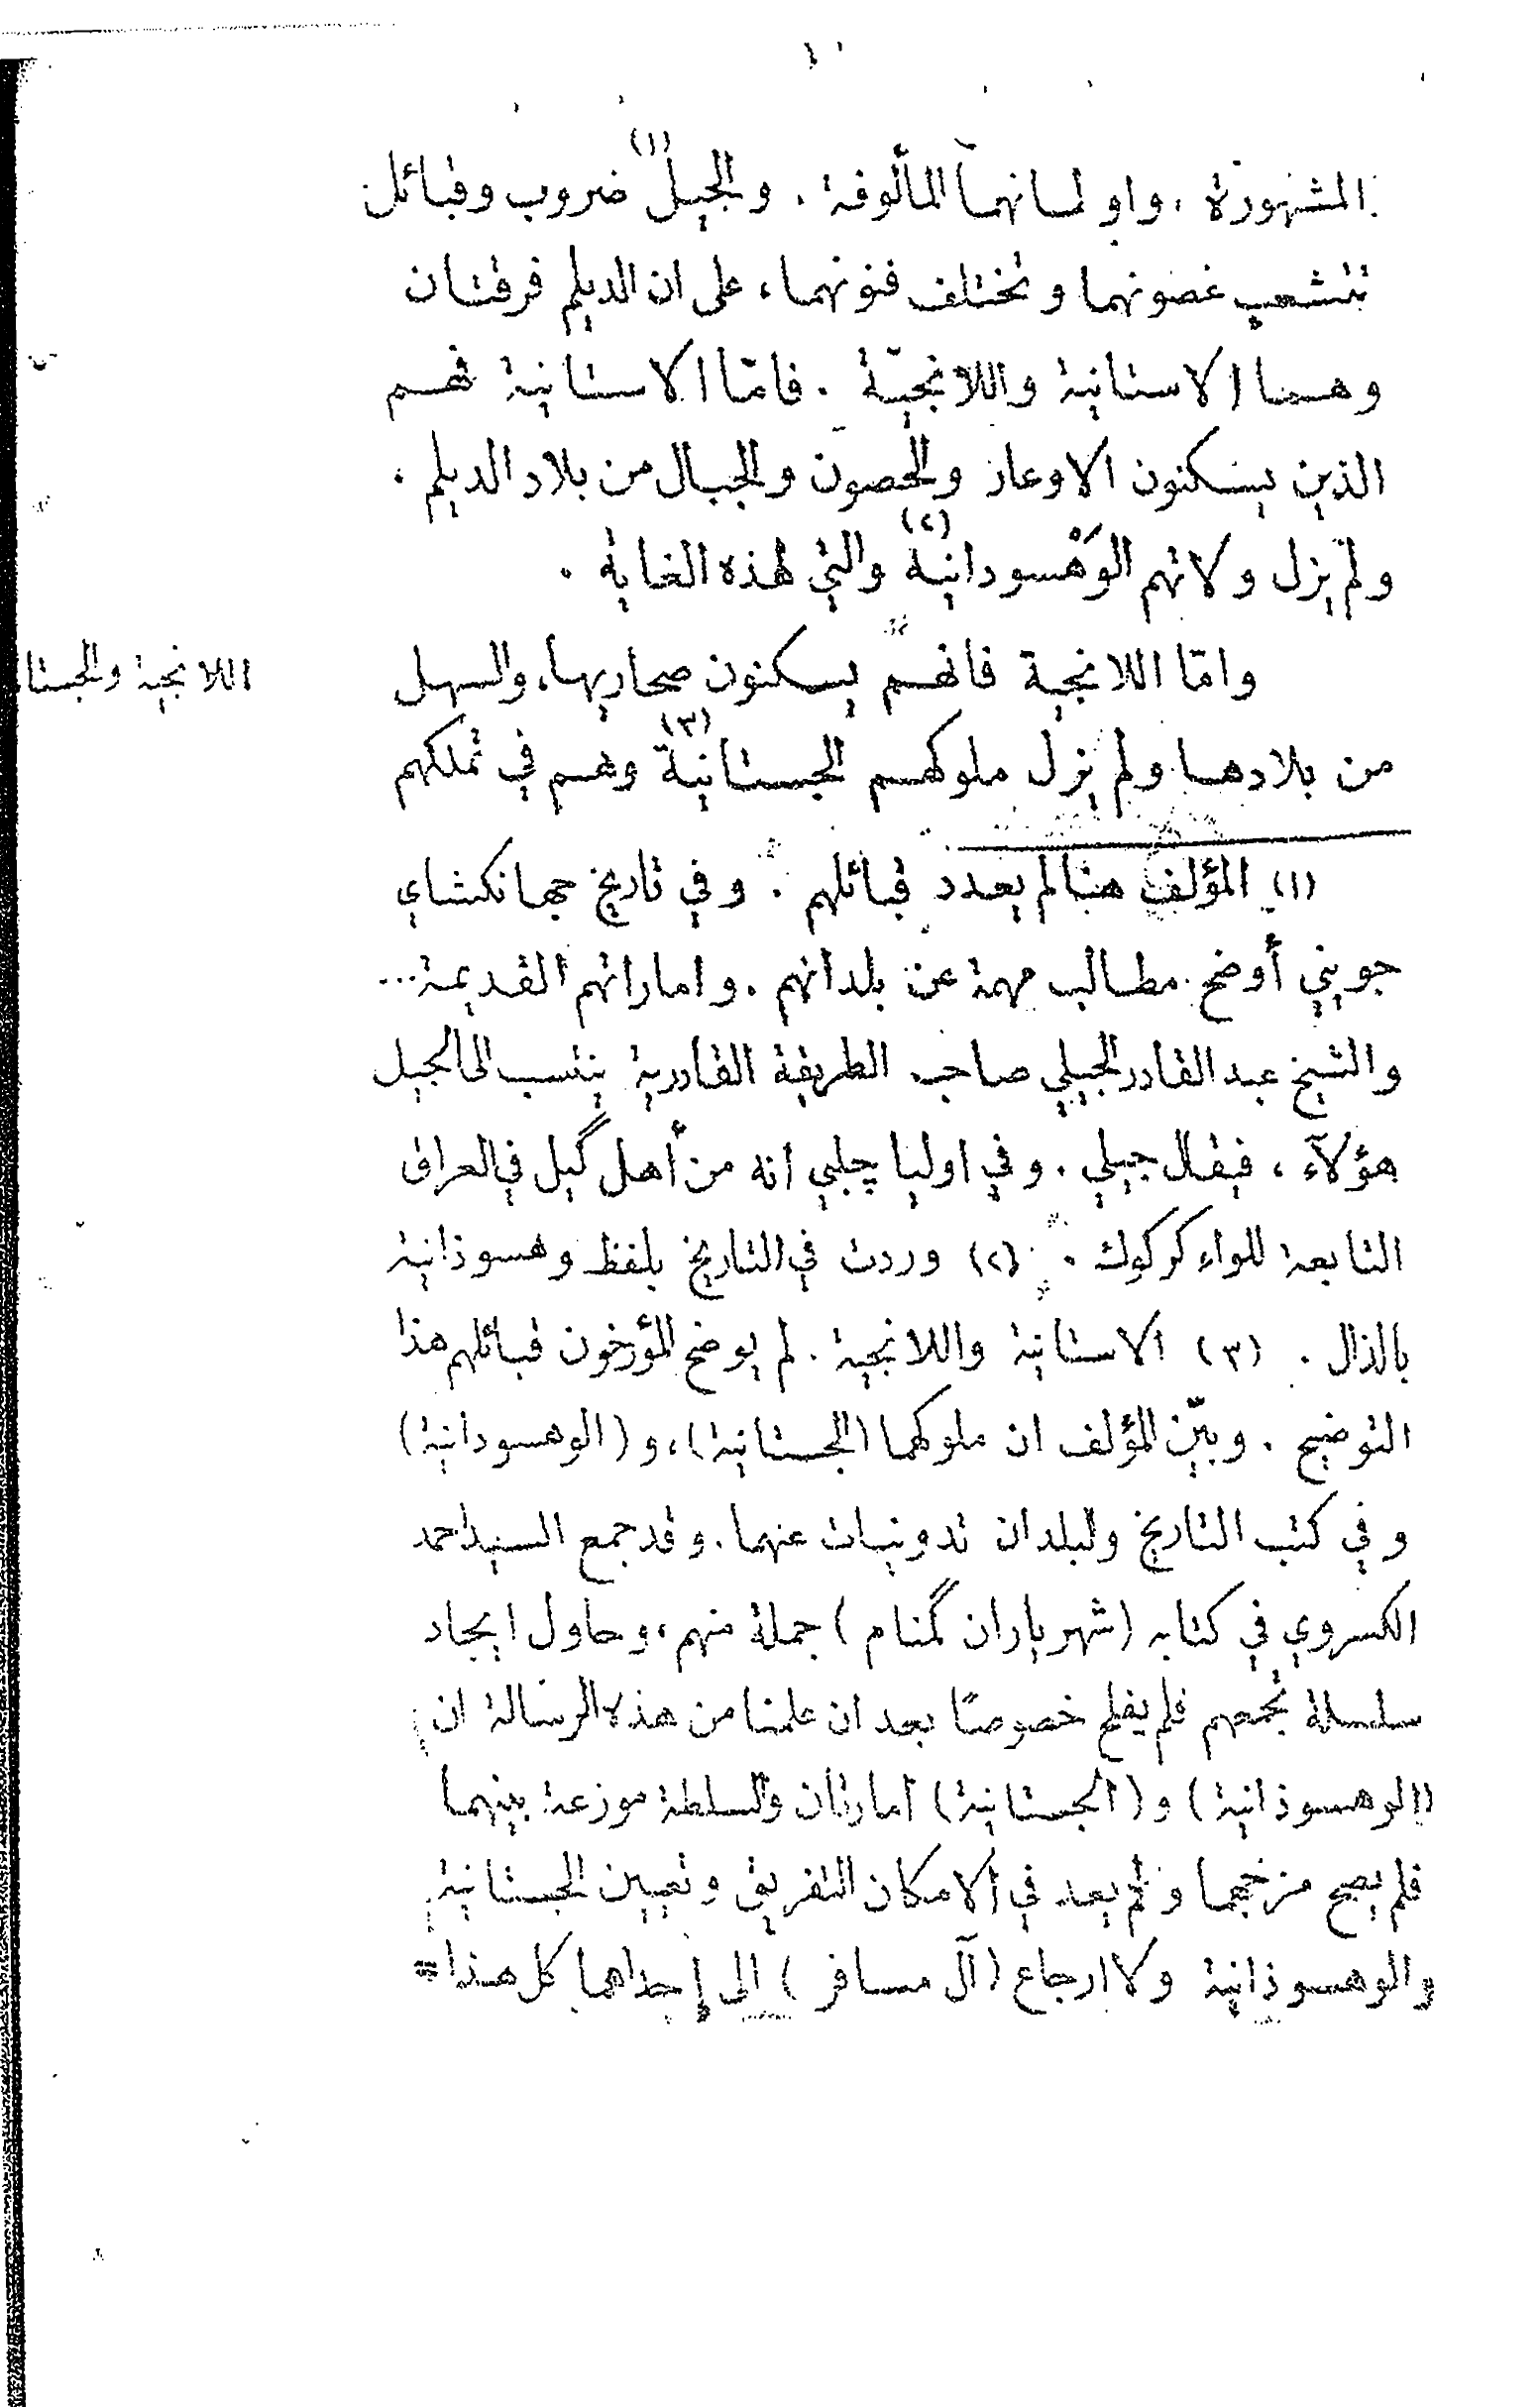 المشهورة ، واو لسانهما المألوفة . والجيل (١) ضروب وقبائل
تتشعب غصونهما وتختلف فنونهما ، على ان الديلم فرقتان
وهما الاستانية واللانجيّة . فامّا الاستانية فهم
الذين يسكنون الاوعار والحصون والجبال من بلاد الديلم .
ولم يزل ولاتهم الوَهْسودانية (٢) والتي لهذه الغاية .
وامّا اللانجية فانهم يسكنون صحاريها ، والسهل
اللانجية والجستا
من بلادها ولم يزل ملوكهم الجستانية (٣) وهم في تملكهم
(١) المؤلف هنا لم يعدد قبائلهم . وفي تاريخ جهانكشاي
جويني أوضح مطالب مهمة عن بلدانهم . واماراتهم القديمة ...
والشيخ عبد القادر الجيلي صاحب الطريقة القادرية ينتسب الى الجيل
هؤلآء ، فيقال جيلي . وفي اوليا چلبي انه من أهل گيل في العراق
التابعة للواء كركوك . (٢) وردت في التاريخ بلفظ وهسوذانية
بالذال . (٣) الاستانية واللانجية . لم يوضح المؤرخون قبائلهم هذا
التوضيح . وبيّن المؤلف ان ملوكهما (الجستانية) ، و (الوهسودانية)
وفي كتب التاريخ والبلدان تدوينات عنهما . وقد جمع السيد احمد
الكسروي في كتابه (شهرياران گمنام) جملة منهم ، وحاول ايجاد
سلسلة تجمعهم فلم يفلح خصوصًا بعد ان علمنا من هذه الرسالة ان
(الوهسوذانية) و (الجستانية) امارتان والسلطة موزعة بينهما
فلم يصح مزجهما ولم يعد في الامكان التفريق وتعيين الجستانية
والوهسوذانية ولا ارجاع (آل مسافر) الى إحداهما كل هذا =